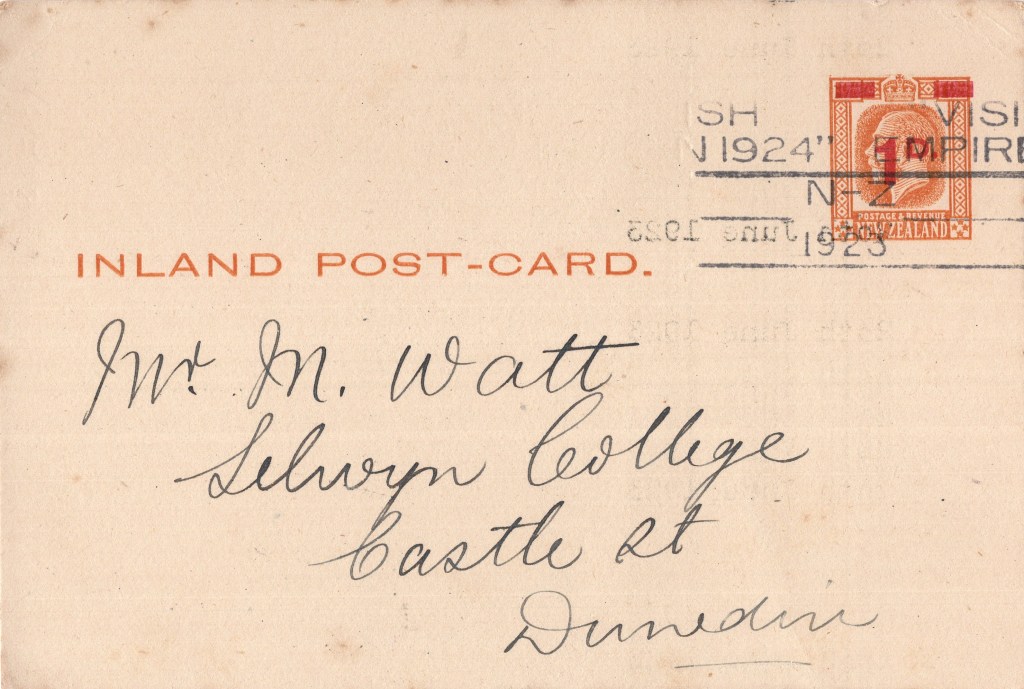 SH VISI
N 1924" EMPIRE
1D
N-Z
POSTAGE & REVENUE
NEW ZEALAND
1923
June 1923
INLAND POST-CARD.
Mr. M. Watt
Selwyn College
Castle St
Dunedin